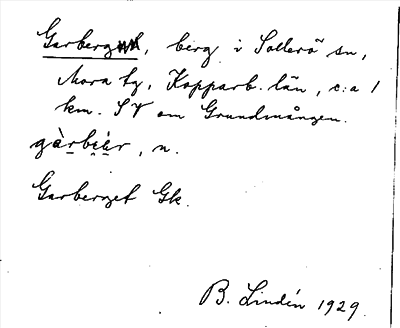 Garberg, berg i Sollerö sn,
Mora tg, Kopparb. län, c:a 1
km. SV om Grundsmången.
gàrbèr, n.
Garberget Gk.
B. Lindén 1929.